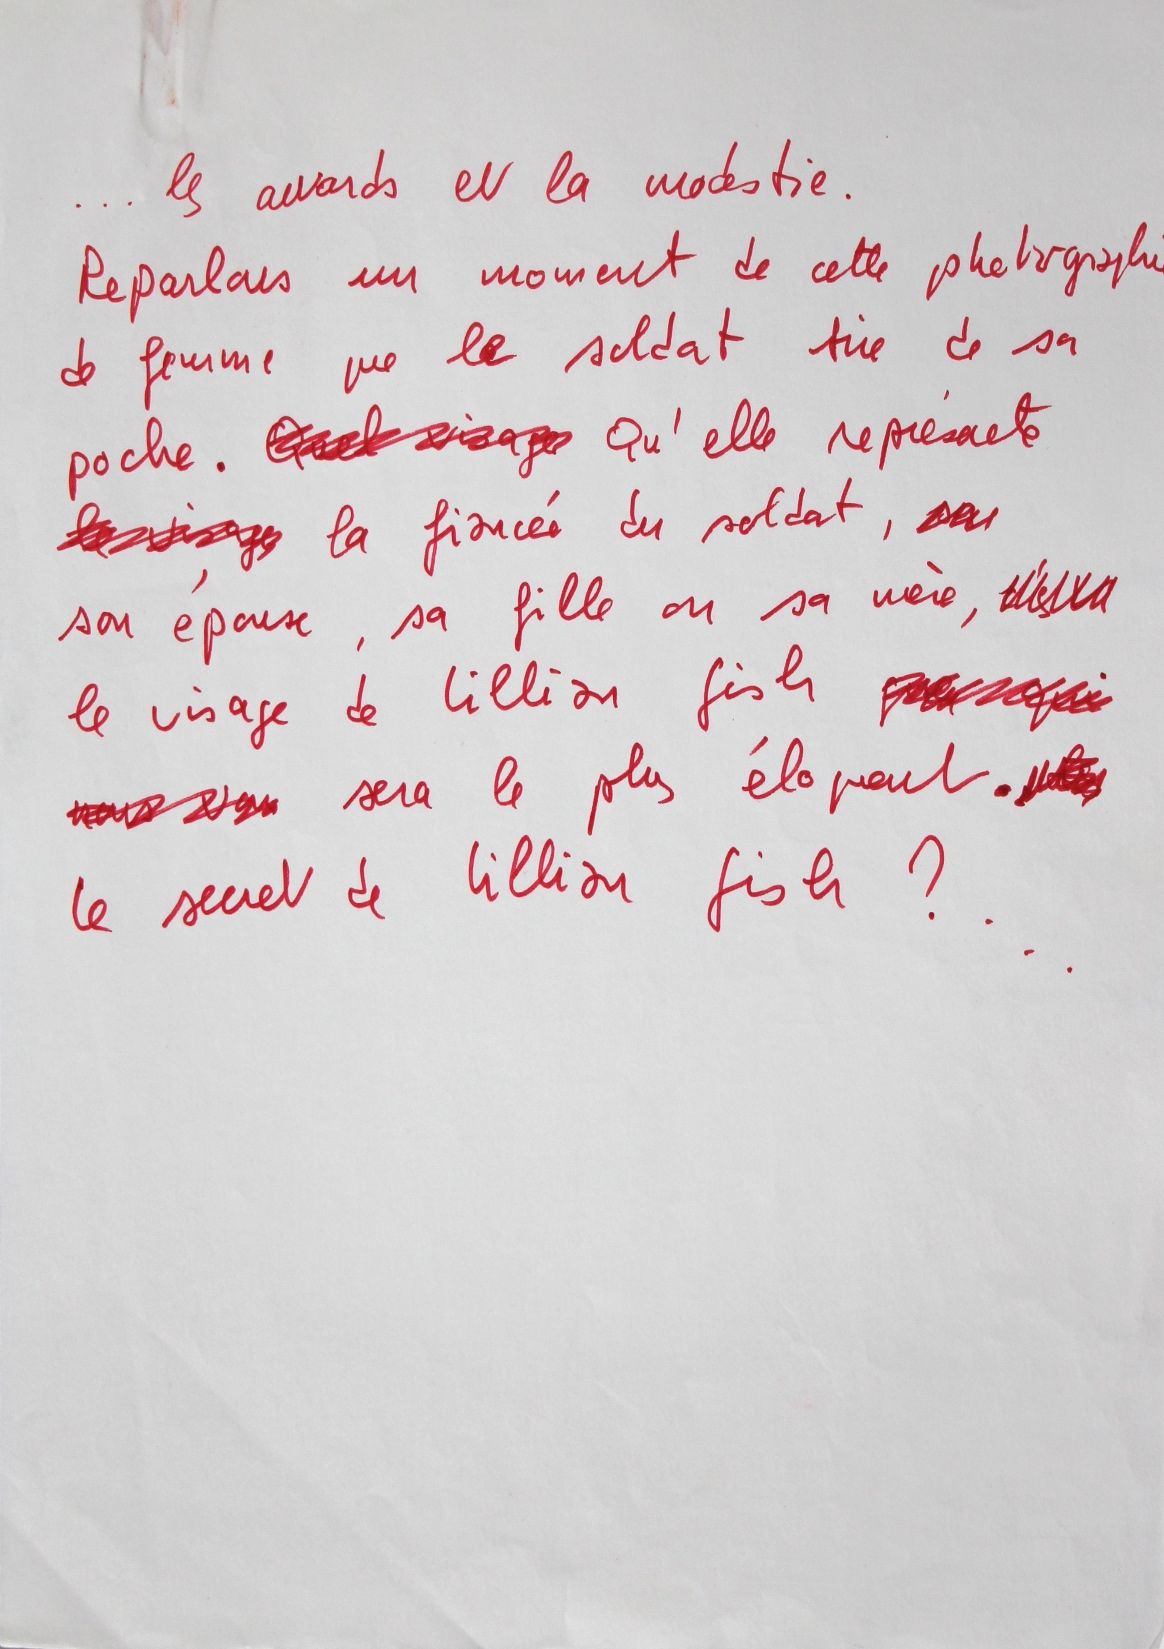 ... les awards et la modestie.
Reparlons un moment de cette photographie
de femme que le soldat tire de sa
poche. Quel visage Qu'elle représente
le visage la fiancée du soldat, son
son épouse, sa fille ou sa mère,
le visage de Lillian Gish
nous sera le plus éloquent.
le secret de Lillian Gish ? ...